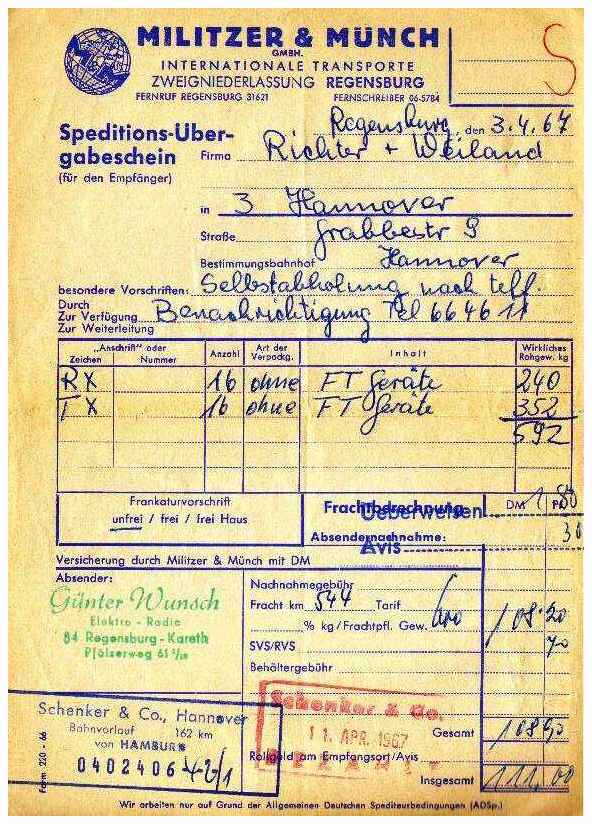 MILITZER & MÜNCH
GMBH.
INTERNATIONALE TRANSPORTE
ZWEIGNIEDERLASSUNG REGENSBURG
FERNRUF REGENSBURG 31621 FERNSCHREIBER 06-5784
S
Regensburg, den 3.4.67
Speditions-Über-
gabeschein
(für den Empfänger)
Firma Richter + Weiland
in 3 Hannover
Straße Grabbestr 9
Bestimmungsbahnhof Hannover
besondere Vorschriften: Selbstabholung nach telf.
Durch
Zur Verfügung Benachrichtigung Tel 664611
Zur Weiterleitung
„Anschrift" oder
Zeichen Nummer Anzahl Art der Verpackg. Inhalt Wirkliches Rohgew. kg
RX 16 ohne FT Geräte 240
TX 16 ohne FT Geräte 352
592
Frankaturvorschrift
unfrei / frei / frei Haus
Frachtberechnung DM Pf
Ueberweisen 1 80
Absendernachnahme: 30
Avis
Versicherung durch Militzer & Münch mit DM
Absender:
Günter Wunsch
Elektro - Radio
84 Regensburg - Kareth
Pfälzerweg 61
Nachnahmegebühr
Fracht km 544 Tarif 108.20
% kg / Frachtpfl. Gew. 600
SVS/RVS 70
Behältergebühr
Schenker & Co., Hannover
Bahnvorlauf 162 km
von HAMBURG
0402406
Form 220 - 66
Schenker & Co.
11. APR. 1967
BEZAHLT
Gesamt 108.90
Rollgeld am Empfangsort/Avis
Insgesamt 111,00
Wir arbeiten nur auf Grund der Allgemeinen Deutschen Spediteurbedingungen (ADSp.)